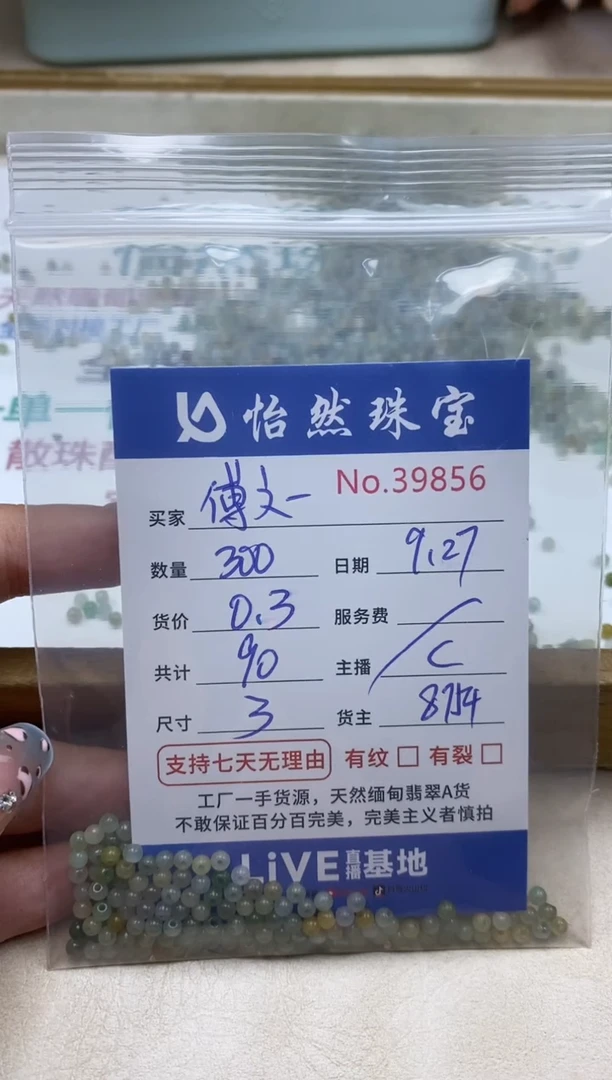 怡然珠宝
No.39856
买家 傅文一
数量 300 日期 9.27
货价 0.3 服务费 /
共计 90 主播 C
尺寸 3 货主
支持七天无理由 有纹 □ 有裂 □
工厂一手货源，天然缅甸翡翠A货
不敢保证百分百完美，完美主义者慎拍
LiVE直播基地